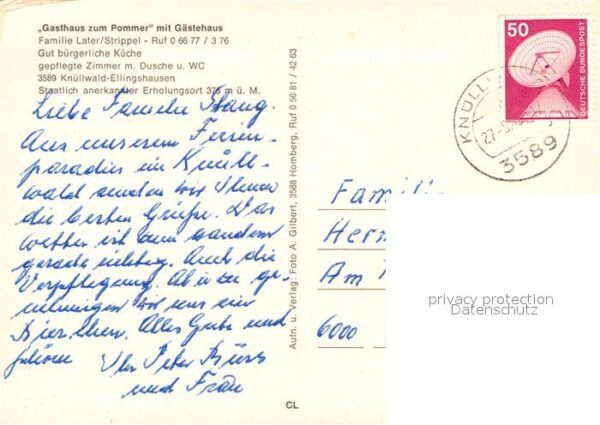 „Gasthaus zum Pommer" mit Gästehaus
Familie Later/Strippel - Ruf 0 66 77 / 3 76
Gut bürgerliche Küche
gepflegte Zimmer m. Dusche u. WC
3589 Knüllwald-Ellingshausen
Staatlich anerkannter Erholungsort 375 m ü. M.
Liebe Familie
Aus unserem Ferien-
paradies im Knüll-
wald senden wir Ihnen
die besten Grüße. Das
Wetter ist zum wandern
gerade richtig. Auch die
Verpflegung. Ab u. zu ge-
nehmigen wir uns ein
Bierchen. Alles Gute und
Ihr Peter
und Frau
Aufn. u. Verlag: Foto A. Gilbert, 3588 Homberg, Ruf 0 56 81 / 42 63
CL
50
DEUTSCHE BUNDESPOST
KNÜLL
27.
3589
Famili
Her
Am
6000
privacy protection
Datenschutz